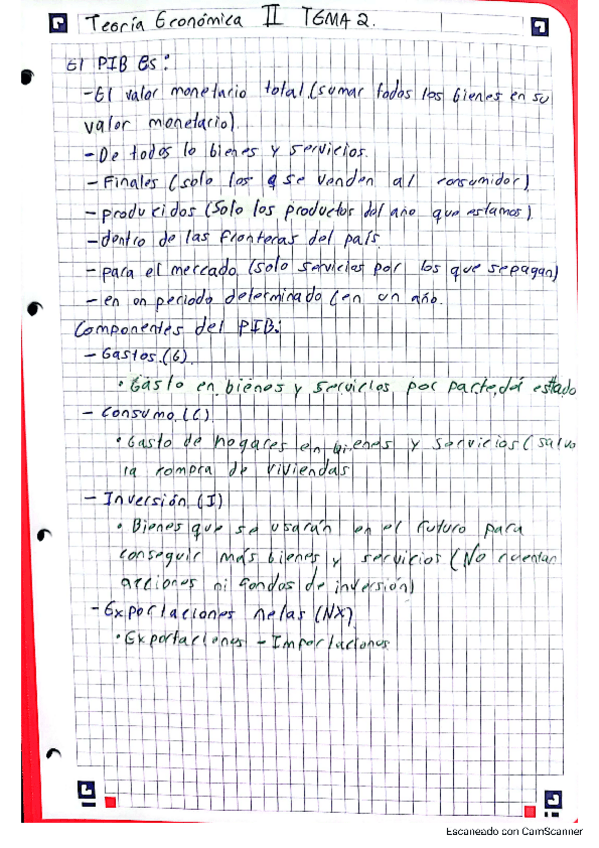 Teoría Económica II TEMA 2.
El PIB es:
-El valor monetario total (sumar todos los bienes en su
valor monetario).
-De todos lo bienes y servicios.
-Finales (solo los q se venden al consumidor)
-producidos (Solo los productos del año que estamos).
-dentro de las fronteras del país.
-para el mercado (solo servicios por los que sepagan)
-en un periodo determinado (en un año.
Componentes del PIB:
-Gastos.(G).
•Gasto en bienes y servicios por parte del estado
-Consumo.(C).
•Gasto de hogares en bienes y servicios (salvo
la compra de viviendas
-Inversión (I)
•Bienes que se usarán en el futuro para
conseguir más bienes y servicios (No cuentan
acciones ni fondos de inversión)
-Exportaciones netas (NX).
•Exportaciones - Importaciones
Escaneado con CamScanner